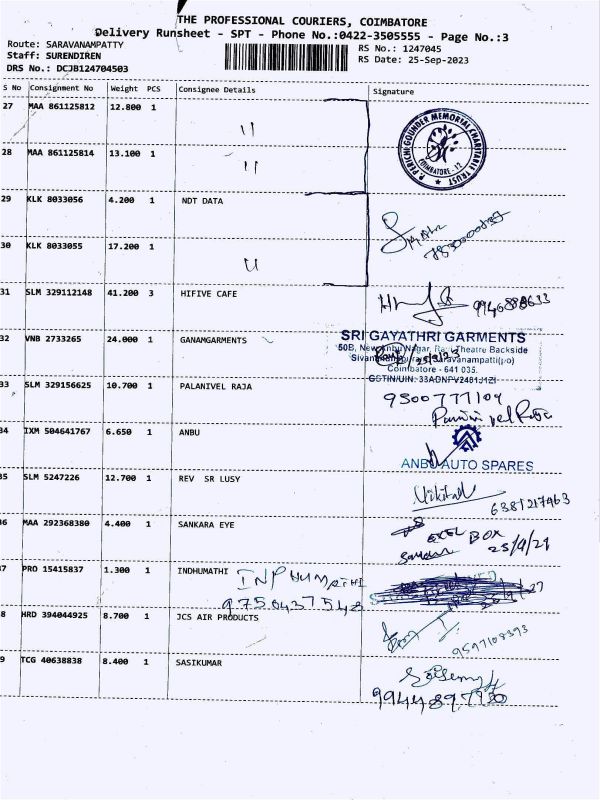 THE PROFESSIONAL COURIERS, COIMBATORE
Delivery Runsheet - SPT - Phone No.:0422-3505555 - Page No.:3
Route: SARAVANAMPATTY
Staff: SURENDIREN
DRS No.: DCJB124704503
RS No.: 1247045
RS Date: 25-Sep-2023
S No Consignment No Weight PCS Consignee Details Signature
27 MAA 861125812 12.800 1 "
P. PERICHIGOUNDER MEMORIAL CHARITABLE TRUST
COIMBATORE - 12
28 MAA 861125814 13.100 1 "
29 KLK 8033056 4.200 1 NDT DATA
30 KLK 8033055 17.200 1 "
31 SLM 329112148 41.200 3 HIFIVE CAFE
32 VNB 2733265 24.000 1 GANAMGARMENTS
SRI GAYATHRI GARMENTS
50B, New Anbu Nagar, Theatre Backside
Saravanampatti(po)
Coimbatore - 641 035.
25/9/23
33 SLM 329156625 10.700 1 PALANIVEL RAJA
9500777104
34 IXM 504641767 6.650 1 ANBU
ANBU AUTO SPARES
35 SLM 5247226 12.700 1 REV SR LUSY
6381217463
36 MAA 292368380 4.400 1 SANKARA EYE
EXCEL BOX
37 PRO 15415837 1.300 1 INDHUMATHI
9750437548
38 HRD 394044925 8.700 1 JCS AIR PRODUCTS
9597108393
39 TCG 40638838 8.400 1 SASIKUMAR